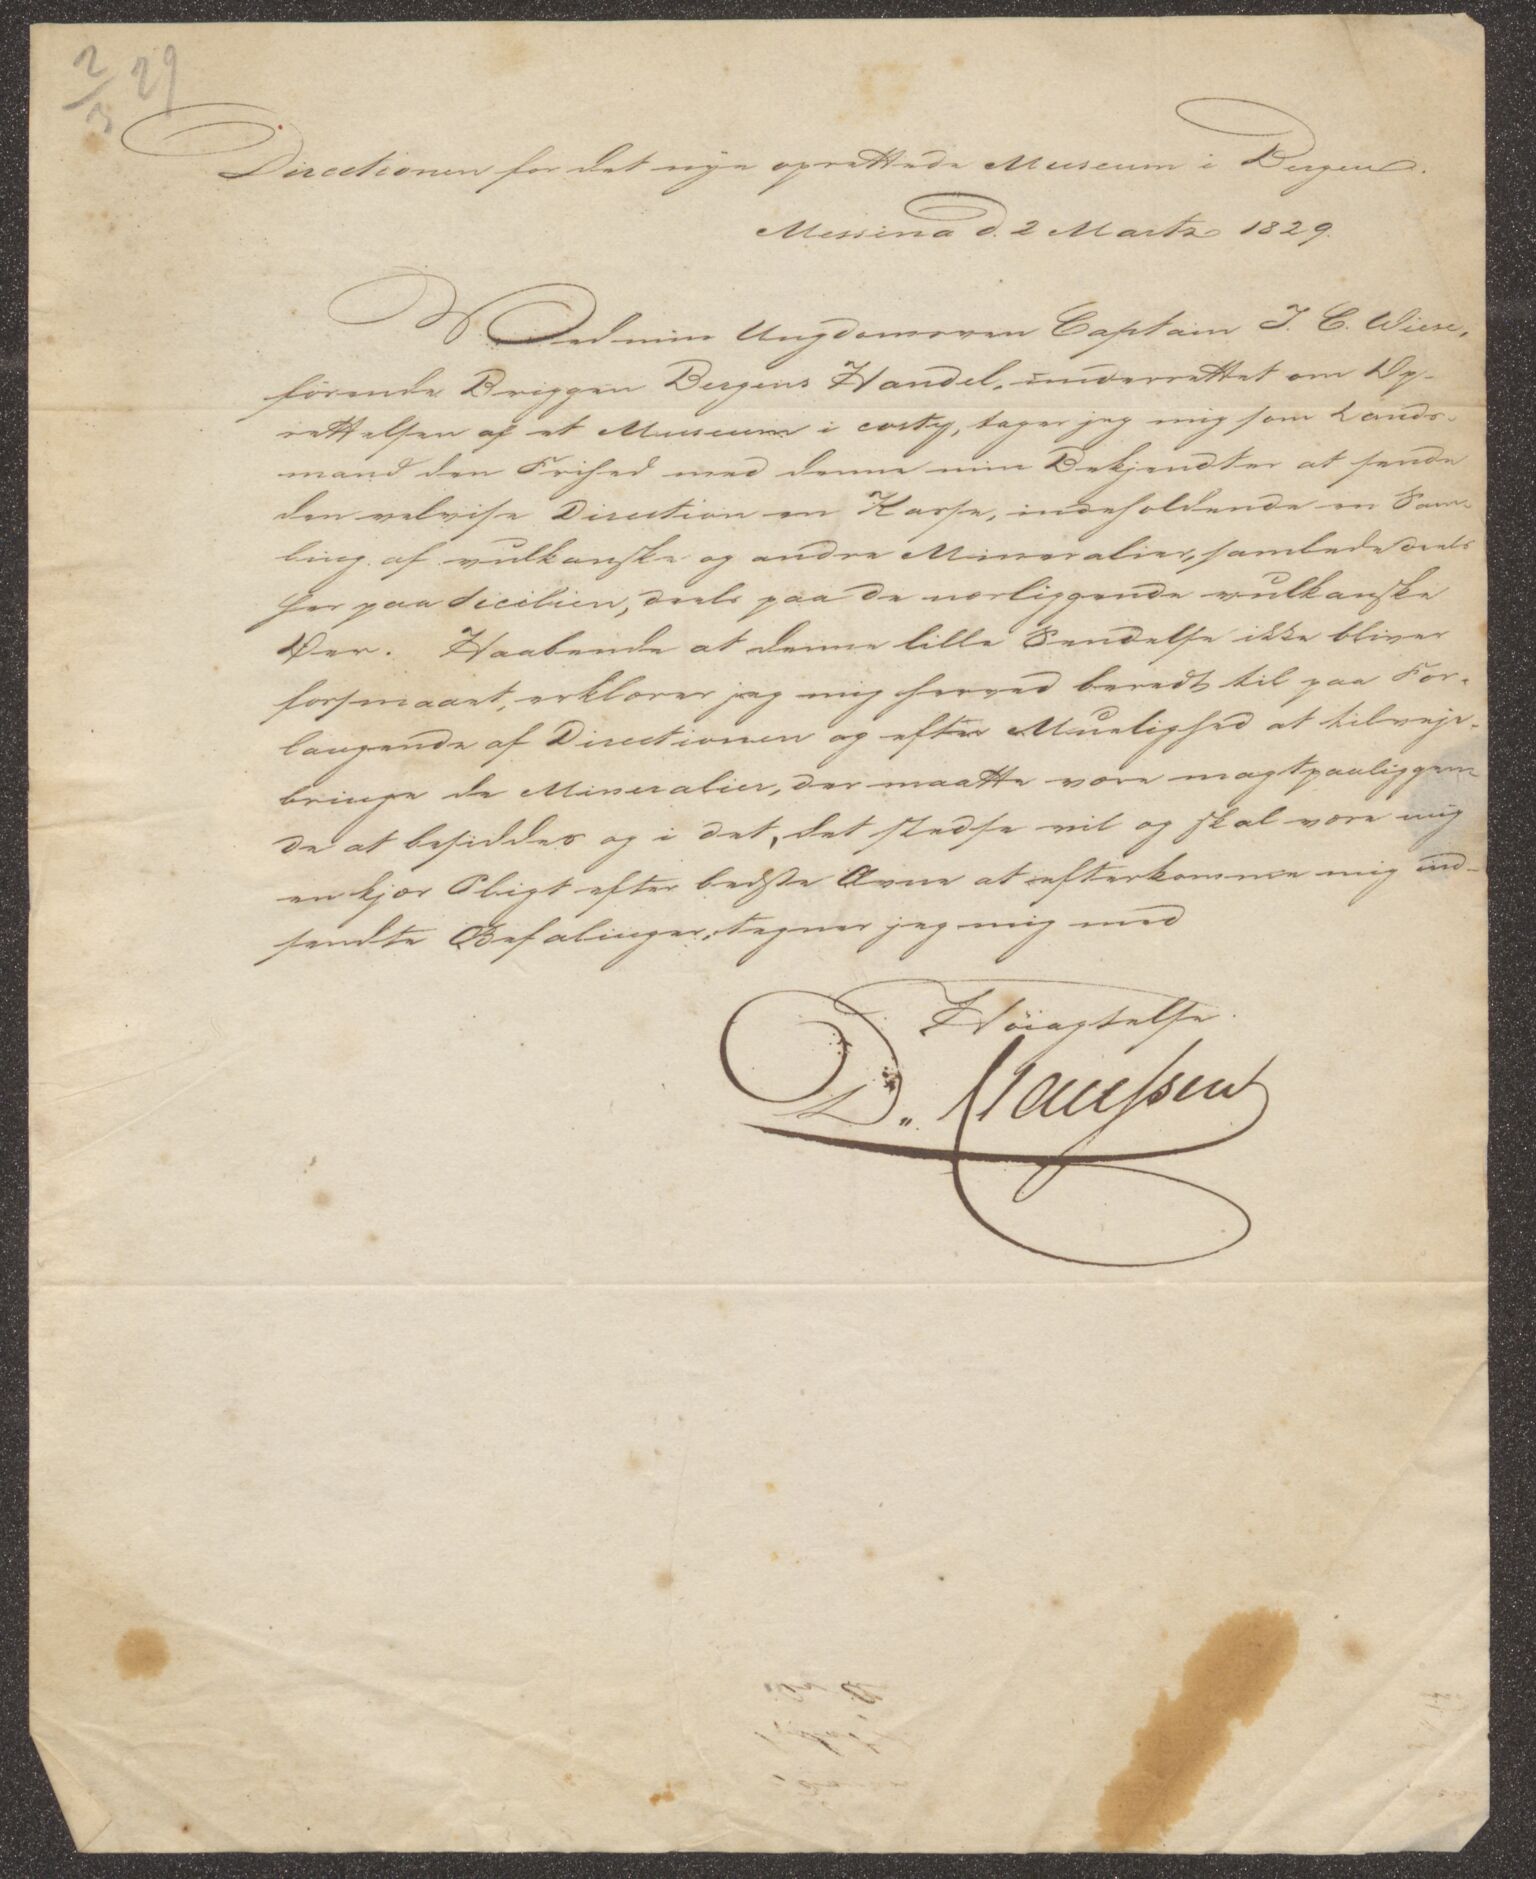 2/3 29
Directionen for det nye oprettede Museum i Bergen.
Messina d. 2 Martz 1829.
Ved min Ungdomsven Captain J. C. Wiese,
förende Briggen Bergens Handel, underrettet om Op-
rettelsen af et Museum i , tager jeg mig som Lands-
mand den Frihed med denne min Bekjendter at sende
den velvise Direction en Kasse, indeholdende en Sam-
ling af vulkanske og andre Mineralier, samlede deels
her paa Sicilien, deels paa de nærliggende vulkanske
Öer. Haabende at denne lille Sendelse ikke bliver
forsmaaet, erklærer jeg mig herved beredt til paa For-
langende af Directionen og efter Muelighed at tilveje-
bringe de Mineralier, der maatte være magtpaaliggen-
de at besiddes og i det, det stedse vil og skal være mig
en kjær Pligt efter bedste Ævne at efterkomme mig ind-
sendte Befalinger, tegner jeg mig med
Höiagtelse.
D. Claussen